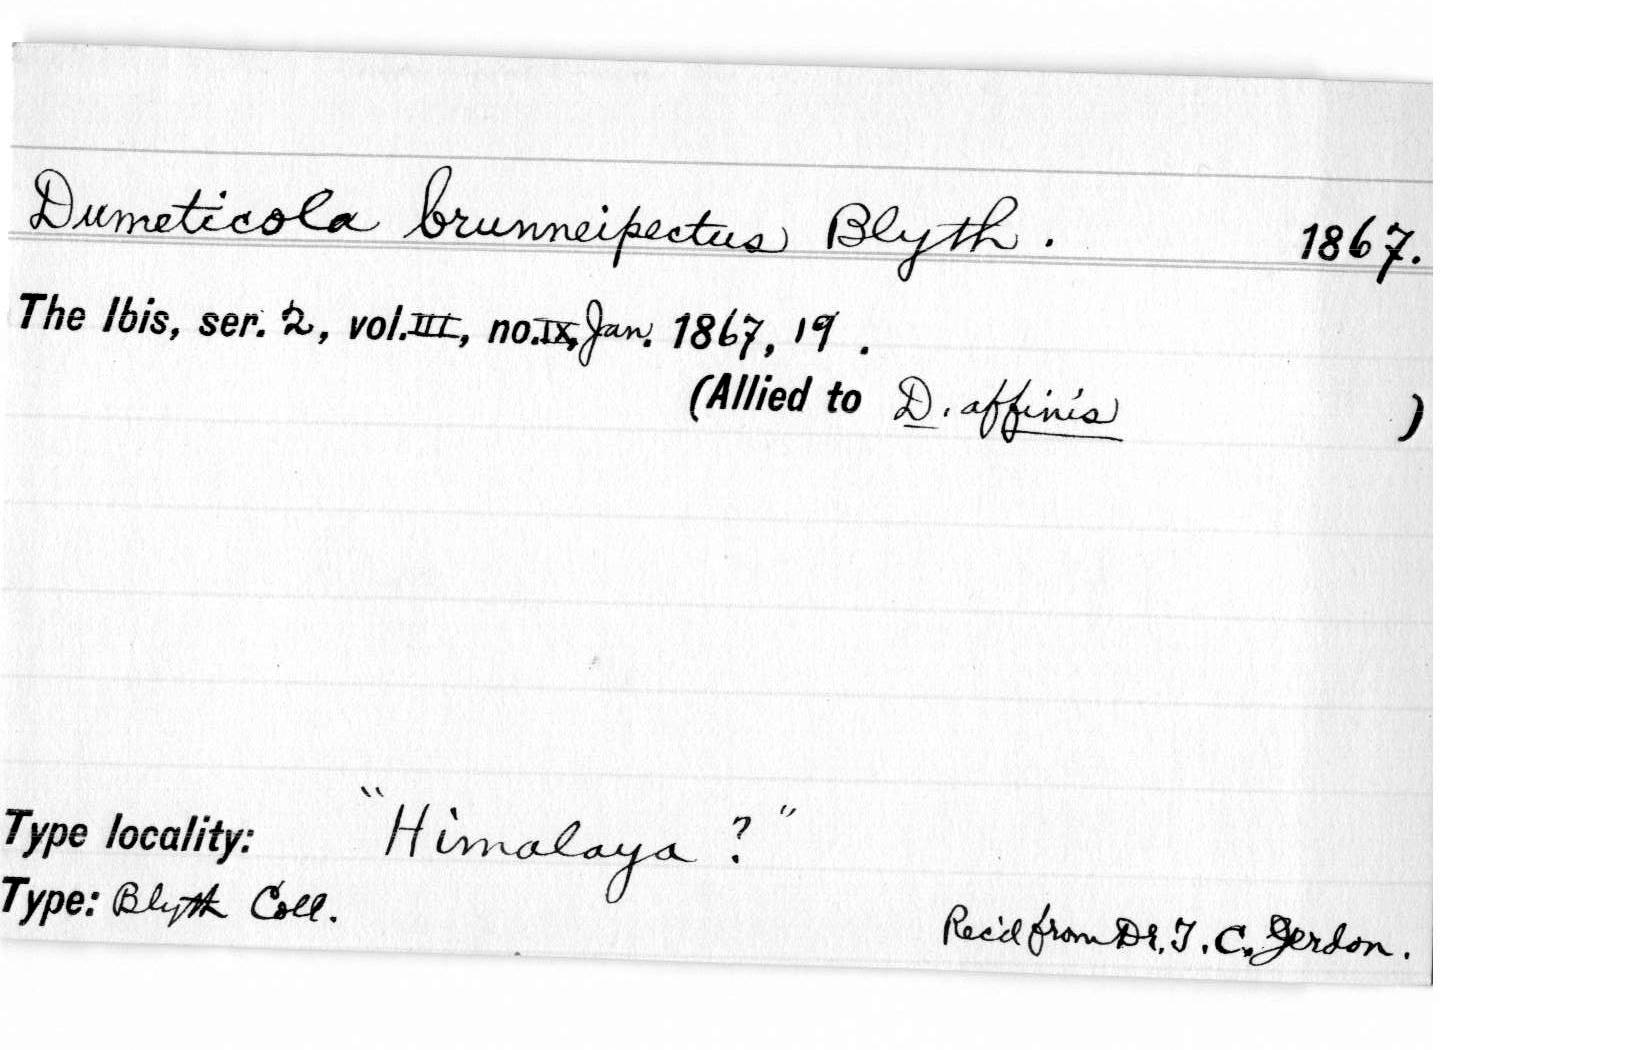 Dumeticola brunneipectus Blyth. 1867.
The Ibis, ser. 2, vol. III, no. IX, Jan. 1867, 19.
(Allied to D. affinis )
Type locality: "Himalaya ?"
Type: Blyth Coll.
Rec'd from Dr. T. C. Jerdon.